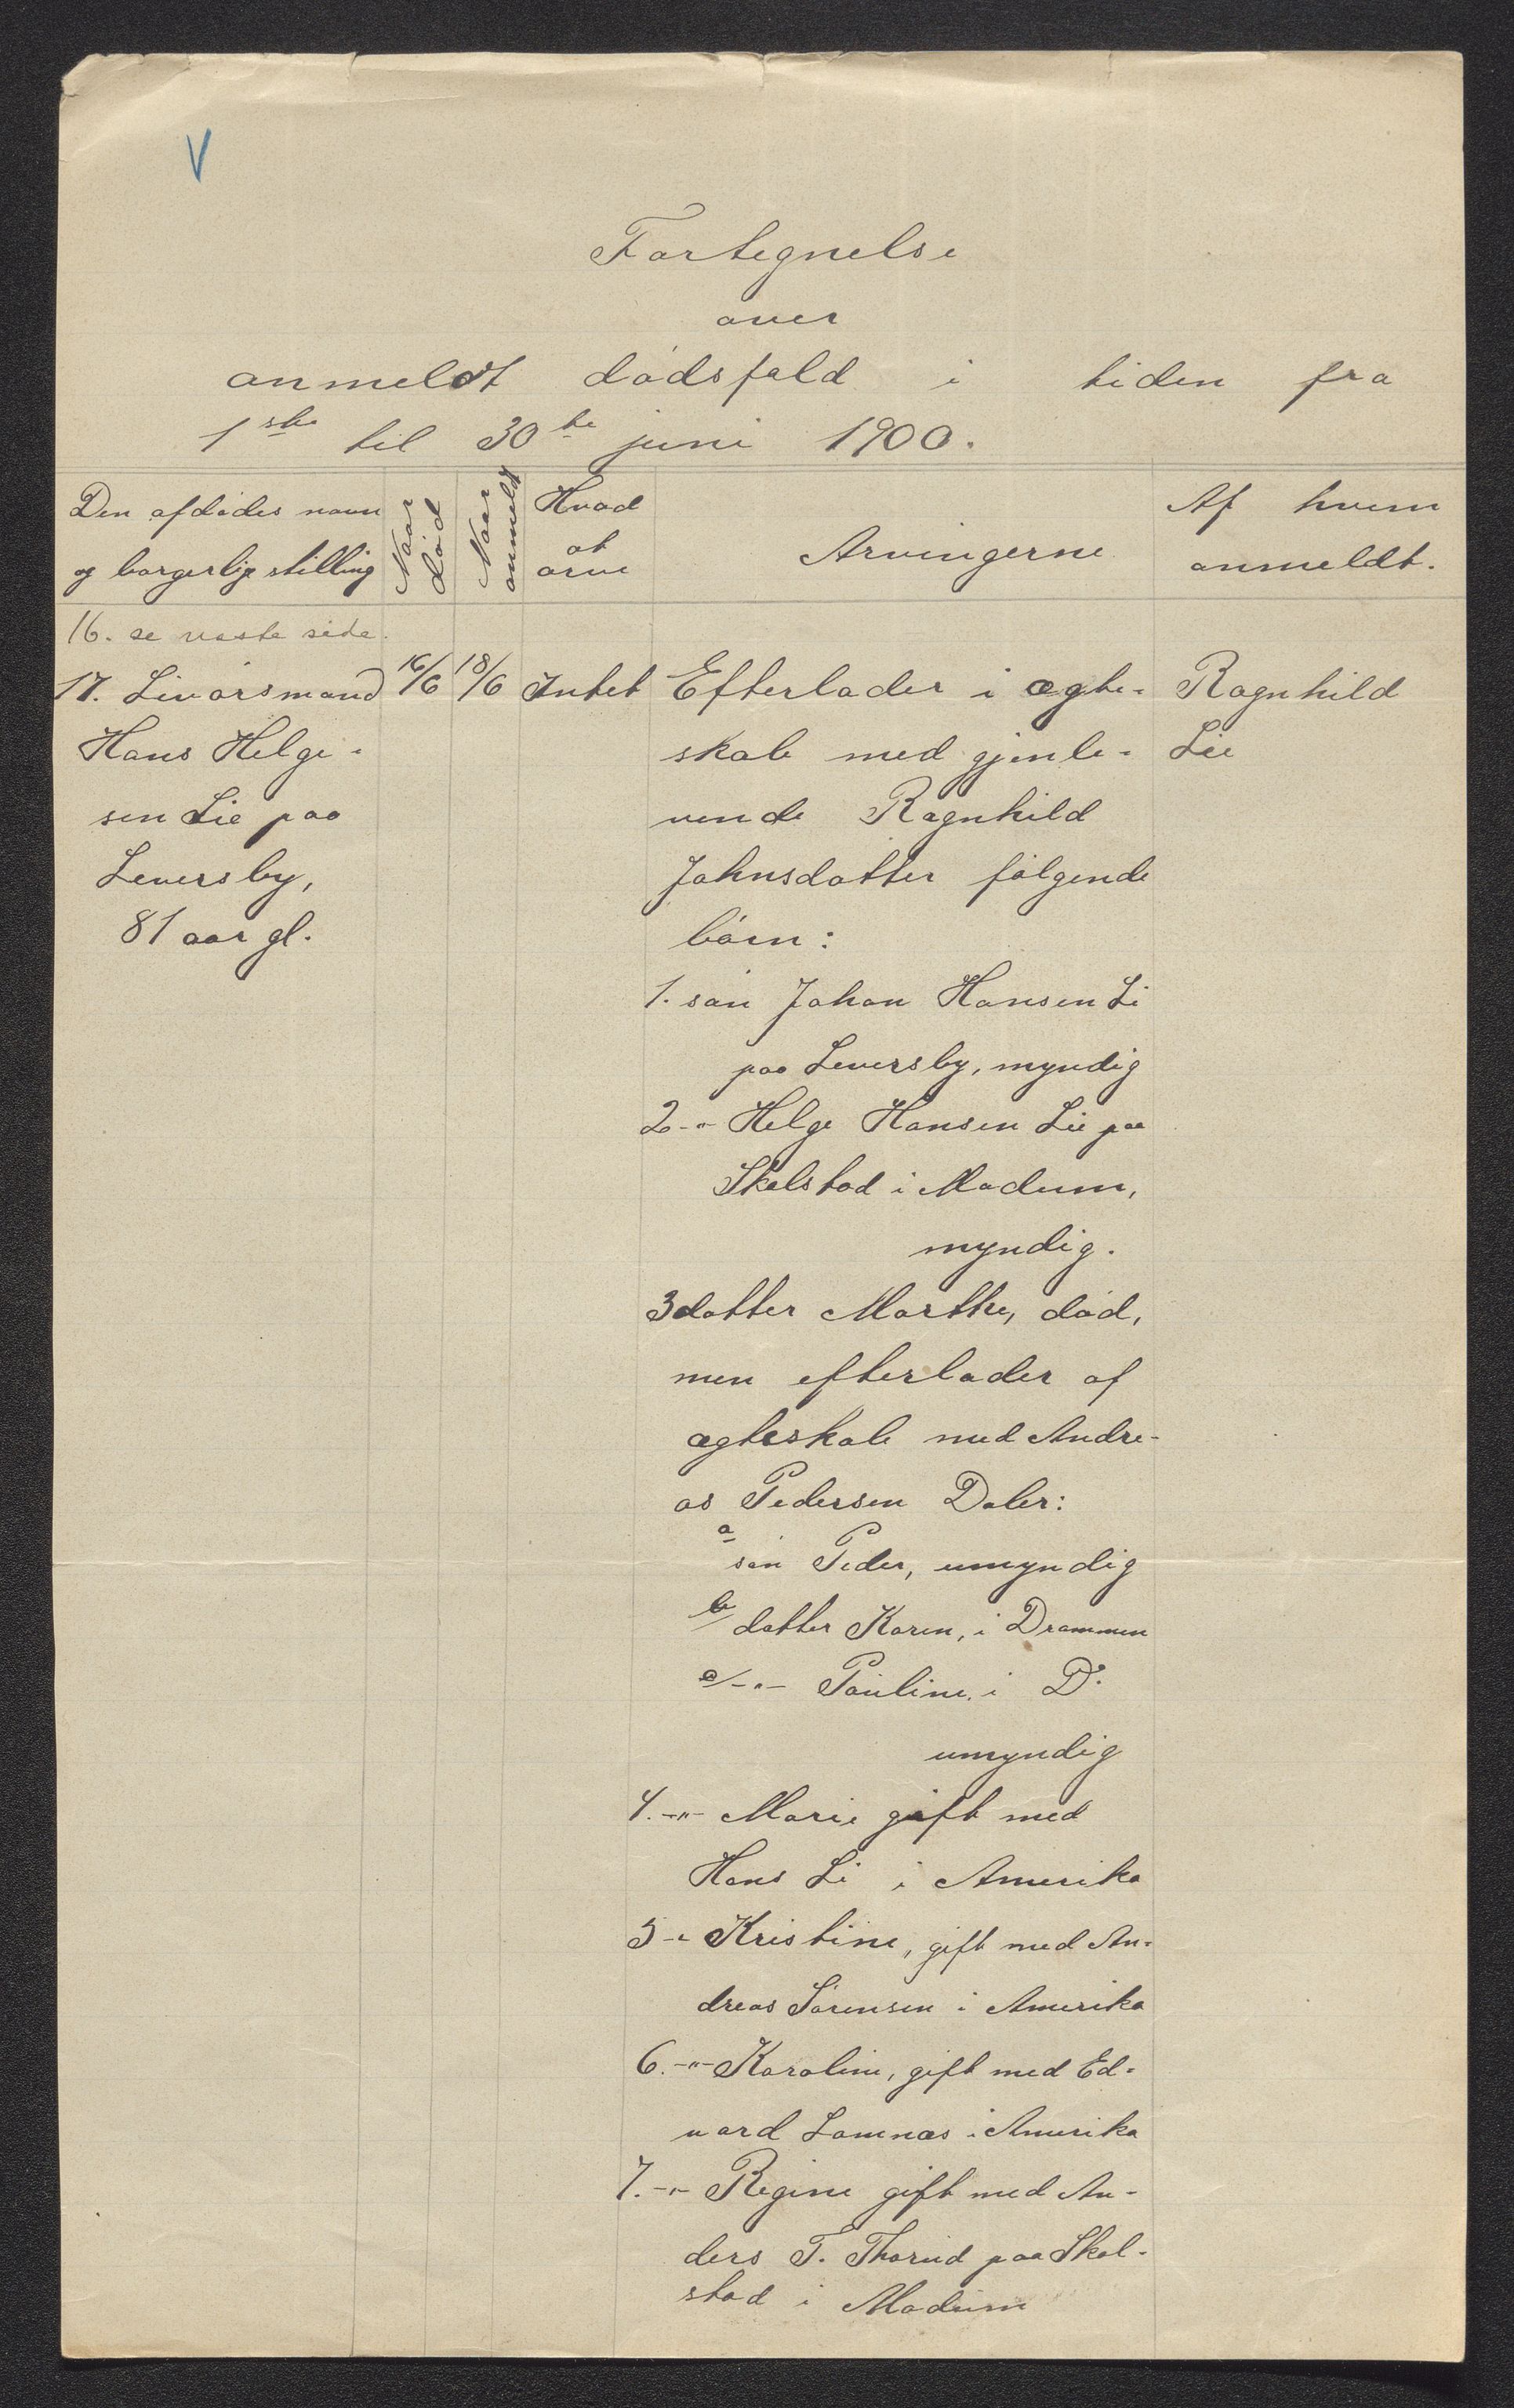 V
Fortegnelse
over
anmeldt dødsfald i tiden fra
1ste til 30te juni 1900.
Den afdødes navn
og borgerlige stilling
Naar
død
Naar
anmeldt
Hvad
at
arve
Arvingerne
Af hvem
anmeldt.
16. se næste side.
17. Livørsmand
Hans Helge-
sen Lie paa
Leversby,
81 aar gl.
16/6
18/6
Intet
Efterlader i ægte-
skab med gjenle-
vende Ragnhild
Johnsdatter følgende
børn:
1. søn Johan Hansen Li
paa Leversby, myndig
2 -"- Helge Hansen Lie paa
Skalstad i Modum,
myndig.
3 datter Marthe, død,
men efterlader af
ægteskab med Andre-
as Pedersen Daler:
a søn Peder, umyndig
b/ datter Karen, i Drammen
c/ -"- Pauline, i Do
umyndig
4. -"- Marie gift med
Hans Li i Amerika
5 -"- Kristine, gift med An-
dreas Sørensen i Amerika
6. -"- Karoline, gift med Ed-
vard Lamnæs i Amerika
7. -"- Regine gift med An-
ders T. Thorud paa Skal-
stad i Modum
Ragnhild
Lie